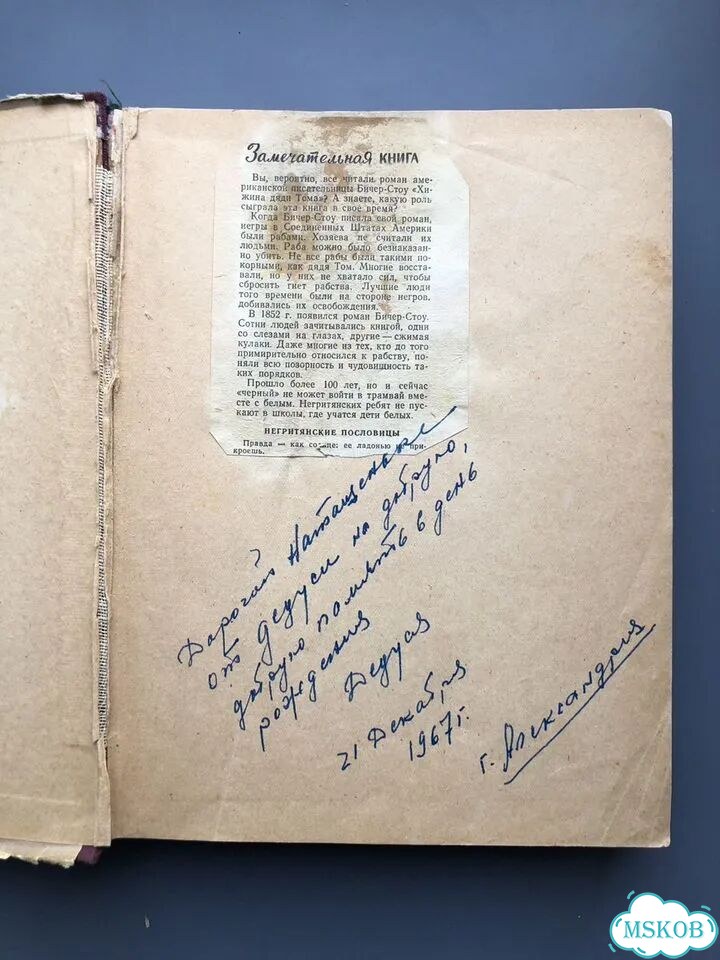 Замечательная КНИГА
Вы, вероятно, все читали роман аме-
риканской писательницы Бичер-Стоу «Хи-
жина дяди Тома»? А знаете, какую роль
сыграла эта книга в свое время?
Когда Бичер-Стоу писала свой роман,
негры в Соединенных Штатах Америки
были рабами. Хозяева не считали их
людьми. Раба можно было безнаказан-
но убить. Не все рабы были такими по-
корными, как дядя Том. Многие восста-
вали, но у них не хватало сил, чтобы
сбросить гнет рабства. Лучшие люди
того времени были на стороне негров,
добивались их освобождения.
В 1852 г. появился роман Бичер-Стоу.
Сотни людей зачитывались книгой, одни
со слезами на глазах, другие — сжимая
кулаки. Даже многие из тех, кто до того
примирительно относился к рабству, по-
няли всю позорность и чудовищность та-
ких порядков.
Прошло более 100 лет, но и сейчас
«черный» не может войти в трамвай вме-
сте с белым. Негритянских ребят не пус-
кают в школы, где учатся дети белых.
НЕГРИТЯНСКИЕ ПОСЛОВИЦЫ
Правда — как солнце: ее ладонью не при-
кроешь.
Дорогой Наташеньке
от дедуси на добрую,
добрую память в день
рождения
Дедуся
21 Декабря
1967 г.
г. Александрия
MSKOB